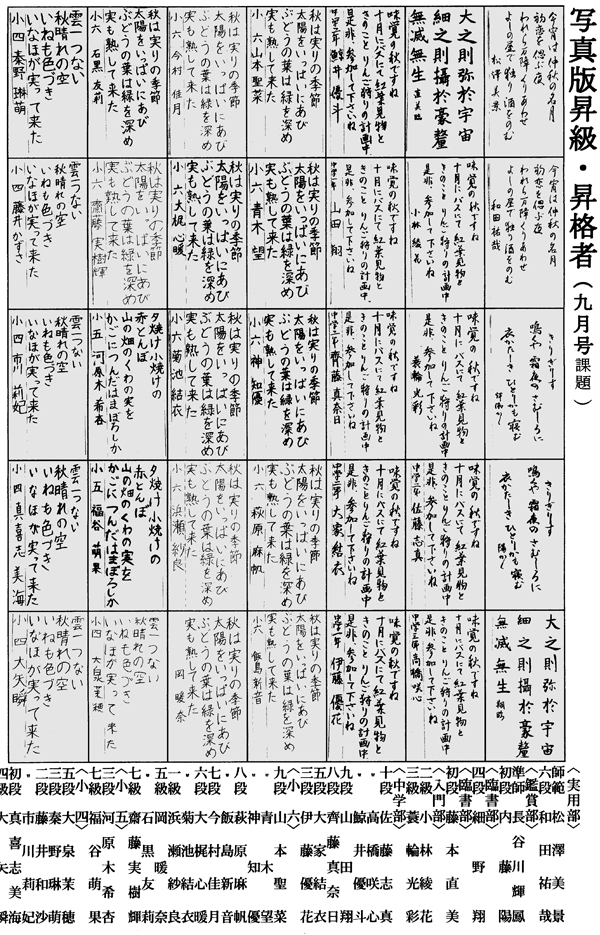 写真版昇級・昇格者(九月号課題)
今宵は仲秋の名月
初恋を偲ぶ夜
われら万障くりあわせ
よしの屋で独り酒をのむ
松澤美景
大之則弥於宇宙
細之則攝於豪釐
無滅無生 直美臨
味覚の秋ですね
十月にバスにて紅葉見物と
きのことりんご狩りの計画中
是非参加して下さいね
鯨井優斗
秋は実りの季節
太陽をいっぱいにあび
ぶどうの葉は緑を深め
実も熟して来た
小六 山本聖菜
秋は実りの季節
太陽をいっぱいにあび
ぶどうの葉は緑を深め
実も熟して来た
小六 今村佳月
秋は実りの季節
太陽をいっぱいにあび
ぶどうの葉は緑を深め
実も熟して来た
小六 石黒友莉
雲一つない
秋晴れの空
いねも色づき
いなほが実って来た
小四 秦野琳萌
今宵は仲秋の名月
初恋を偲ぶ夜
われら万障くりあわせ
よしの屋で独り酒をのむ
和田祐哉
味覚の秋ですね
十月にバスにて紅葉見物と
きのことりんご狩りの計画中
是非参加して下さいね
小林綾花
味覚の秋ですね
十月にバスにて紅葉見物と
きのことりんご狩りの計画中
是非参加して下さいね
山田翔
秋は実りの季節
太陽をいっぱいにあび
ぶどうの葉は緑を深め
実も熟して来た
小六 青木望
秋は実りの季節
太陽をいっぱいにあび
ぶどうの葉は緑を深め
実も熟して来た
小六 大梶心暖
秋は実りの季節
太陽をいっぱいにあび
ぶどうの葉は緑を深め
実も熟して来た
小六 齋藤実樹輝
雲一つない
秋晴れの空
いねも色づき
いなほが実って来た
小四 藤井かずさ
きりぎりす
鳴くや霜夜のさむしろに
衣かたしきひとりかも寝む
味覚の秋ですね
十月にバスにて紅葉見物と
きのことりんご狩りの計画中
是非参加して下さいね
蓑輪光彩
味覚の秋ですね
十月にバスにて紅葉見物と
きのことりんご狩りの計画中
是非参加して下さいね
齊藤真奈日
秋は実りの季節
太陽をいっぱいにあび
ぶどうの葉は緑を深め
実も熟して来た
小六 神知優
秋は実りの季節
太陽をいっぱいにあび
ぶどうの葉は緑を深め
実も熟して来た
小六 菊池結衣
夕焼け小焼けの
赤とんぼ
山の畑のくわの実を
かごにつんだはまぼろしか
小五 河原木希杏
雲一つない
秋晴れの空
いねも色づき
いなほが実って来た
小四 市川莉妃
きりぎりす
鳴くや霜夜のさむしろに
衣かたしきひとりかも寝む
味覚の秋ですね
十月にバスにて紅葉見物と
きのことりんご狩りの計画中
是非参加して下さいね
佐藤志真
味覚の秋ですね
十月にバスにて紅葉見物と
きのことりんご狩りの計画中
是非参加して下さいね
大家結衣
秋は実りの季節
太陽をいっぱいにあび
ぶどうの葉は緑を深め
実も熟して来た
小六 萩原麻帆
秋は実りの季節
太陽をいっぱいにあび
ぶどうの葉は緑を深め
実も熟して来た
小六 浜瀬紗良
夕焼け小焼けの
赤とんぼ
山の畑のくわの実を
かごにつんだはまぼろしか
小五 福谷萌果
雲一つない
秋晴れの空
いねも色づき
いなほが実って来た
小四 真喜志美海
大之則弥於宇宙
細之則攝於豪釐
無滅無生 翔臨
味覚の秋ですね
十月にバスにて紅葉見物と
きのことりんご狩りの計画中
是非参加して下さいね
高橋咲心
味覚の秋ですね
十月にバスにて紅葉見物と
きのことりんご狩りの計画中
是非参加して下さいね
伊藤優花
秋は実りの季節
太陽をいっぱいにあび
ぶどうの葉は緑を深め
実も熟して来た
小六 飯島新音
秋は実りの季節
太陽をいっぱいにあび
ぶどうの葉は緑を深め
実も熟して来た
岡暖奈
雲一つない
秋晴れの空
いねも色づき
いなほが実って来た
雲一つない
秋晴れの空
いねも色づき
いなほが実って来た
小四 大矢瞬
〈実用部〉
師範 松澤美景
六段 和田祐哉
〈鑑賞部〉
準師 長谷川輝鳳
初段
〈臨書部〉
四段 細野翔
〈臨書部〉
初段 藤本直美
〈入門部〉
二級 小林綾花
三級 蓑輪光彩
〈中学部〉
十段 佐藤志真
高橋咲心
鯨井優斗
九段 山田翔
八段 齊藤真奈日
五段 大家結衣
三段 伊藤優花
〈小六〉
九段 山本聖菜
青木望
神知優
八段 萩原麻帆
飯島新音
七段 今村佳月
六段 大梶心暖
菊池結衣
一級 浜瀬紗良
五級 岡暖奈
石黒友莉
齋藤実樹輝
〈小五〉
七級 河原木希杏
福谷萌果
〈小四〉
五段 大泉茉穂
三段 秦野琳萌
二段 藤井和沙
市川莉妃
初段 真喜志美海
四級 大矢瞬